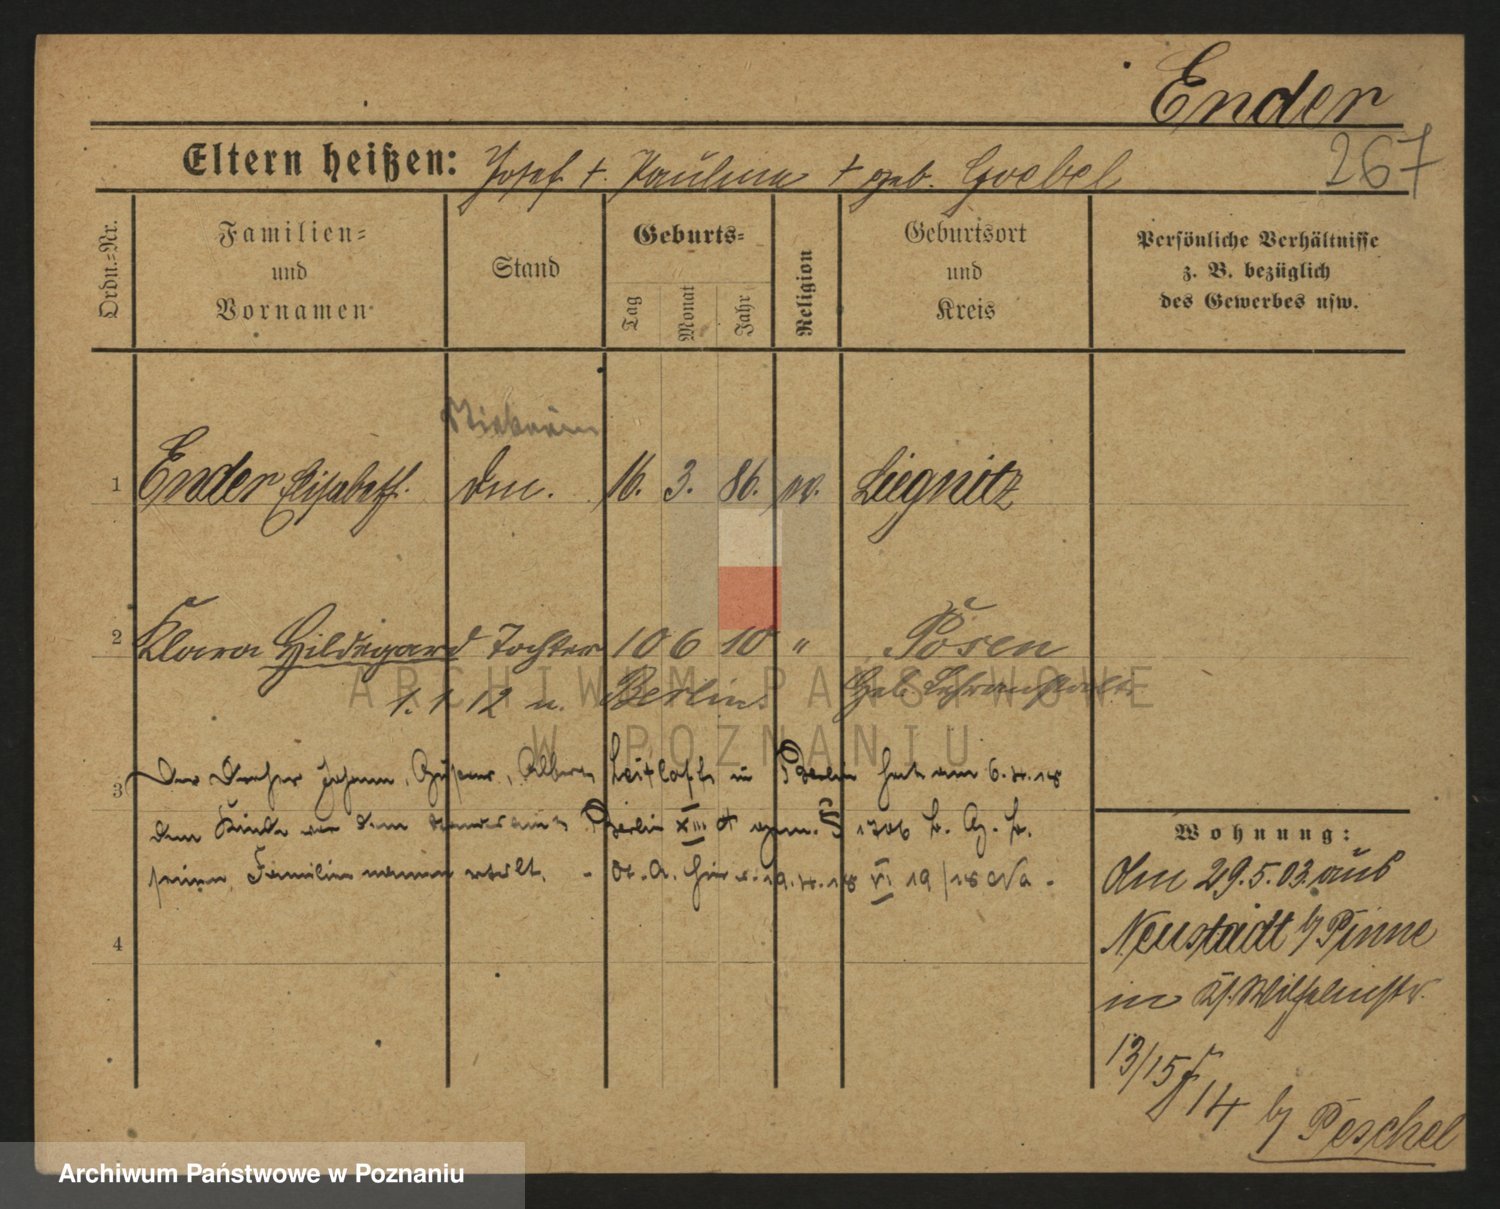 Ender
267
Eltern heißen: Josef †. Paulina † geb. Goebel
Ordn.=Nr.
Familien=
und
Vornamen
Stand
Geburts=
Tag
Monat
Jahr
Religion
Geburtsort
und
Kreis
Persönliche Verhältnisse
z. B. bezüglich
des Gewerbes usw.
1 Ender Elisabeth. 16. 3. 86. Liegnitz
2 Klara Hildegard Tochter 10 6 10 " Posen
1. 1. 12 n. Berlin. Geb.
3 Der Dreher Johann, Gustav, in Berlin hat am 6.4.18
dem Kinde vor dem Berlin XIII 1706 B. G. B.
seinen Familiennamen erteilt. 19.4.18 VI 19/18
4
Wohnung:
den 29.5.03. aus
Neustadt b/ Pinne
in
13/15
14 b/ Peschel
ARCHIWUM PAŃSTWOWE
W POZNANIU
Archiwum Państwowe w Poznaniu